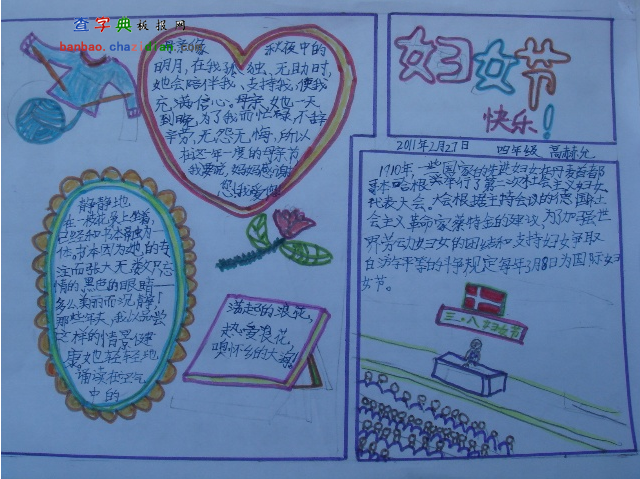 查字典板报网
banbao.chazidian.com
母亲像 秋夜中的
明月,在我孤独、无助时,
她会陪伴我、支持我,使我
充满信心。母亲,她一天
到晚,为了我而忙碌,不辞
辛劳,无怨无悔,所以
在这一年一度的母亲节
我要说,妈妈感谢
您,我爱您
妇女节
快乐!
2011年2月27日 四年级
1910年,一些国家的先进妇女在丹麦首都
哥本哈根举行了第二次社会主义妇女
代表大会。大会根据主持会议的德国社
会主义革命家蔡特金的建议,为加强世
界劳动妇女的团结和支持妇女争取
自由平等的斗争,规定每年3月8日为国际妇
女节。
三·八妇女节
静静地
在一
已经和书本融为一
体。书本因为她的专
注而张大无数只忘
情的黑色的眼睛
多么美丽而沉静!
那些年来,我以品尝
这样的情景
她轻轻地
诵读在空气
中的
荡起的浪花,
热爱浪花,
嗅怀乡的大海!